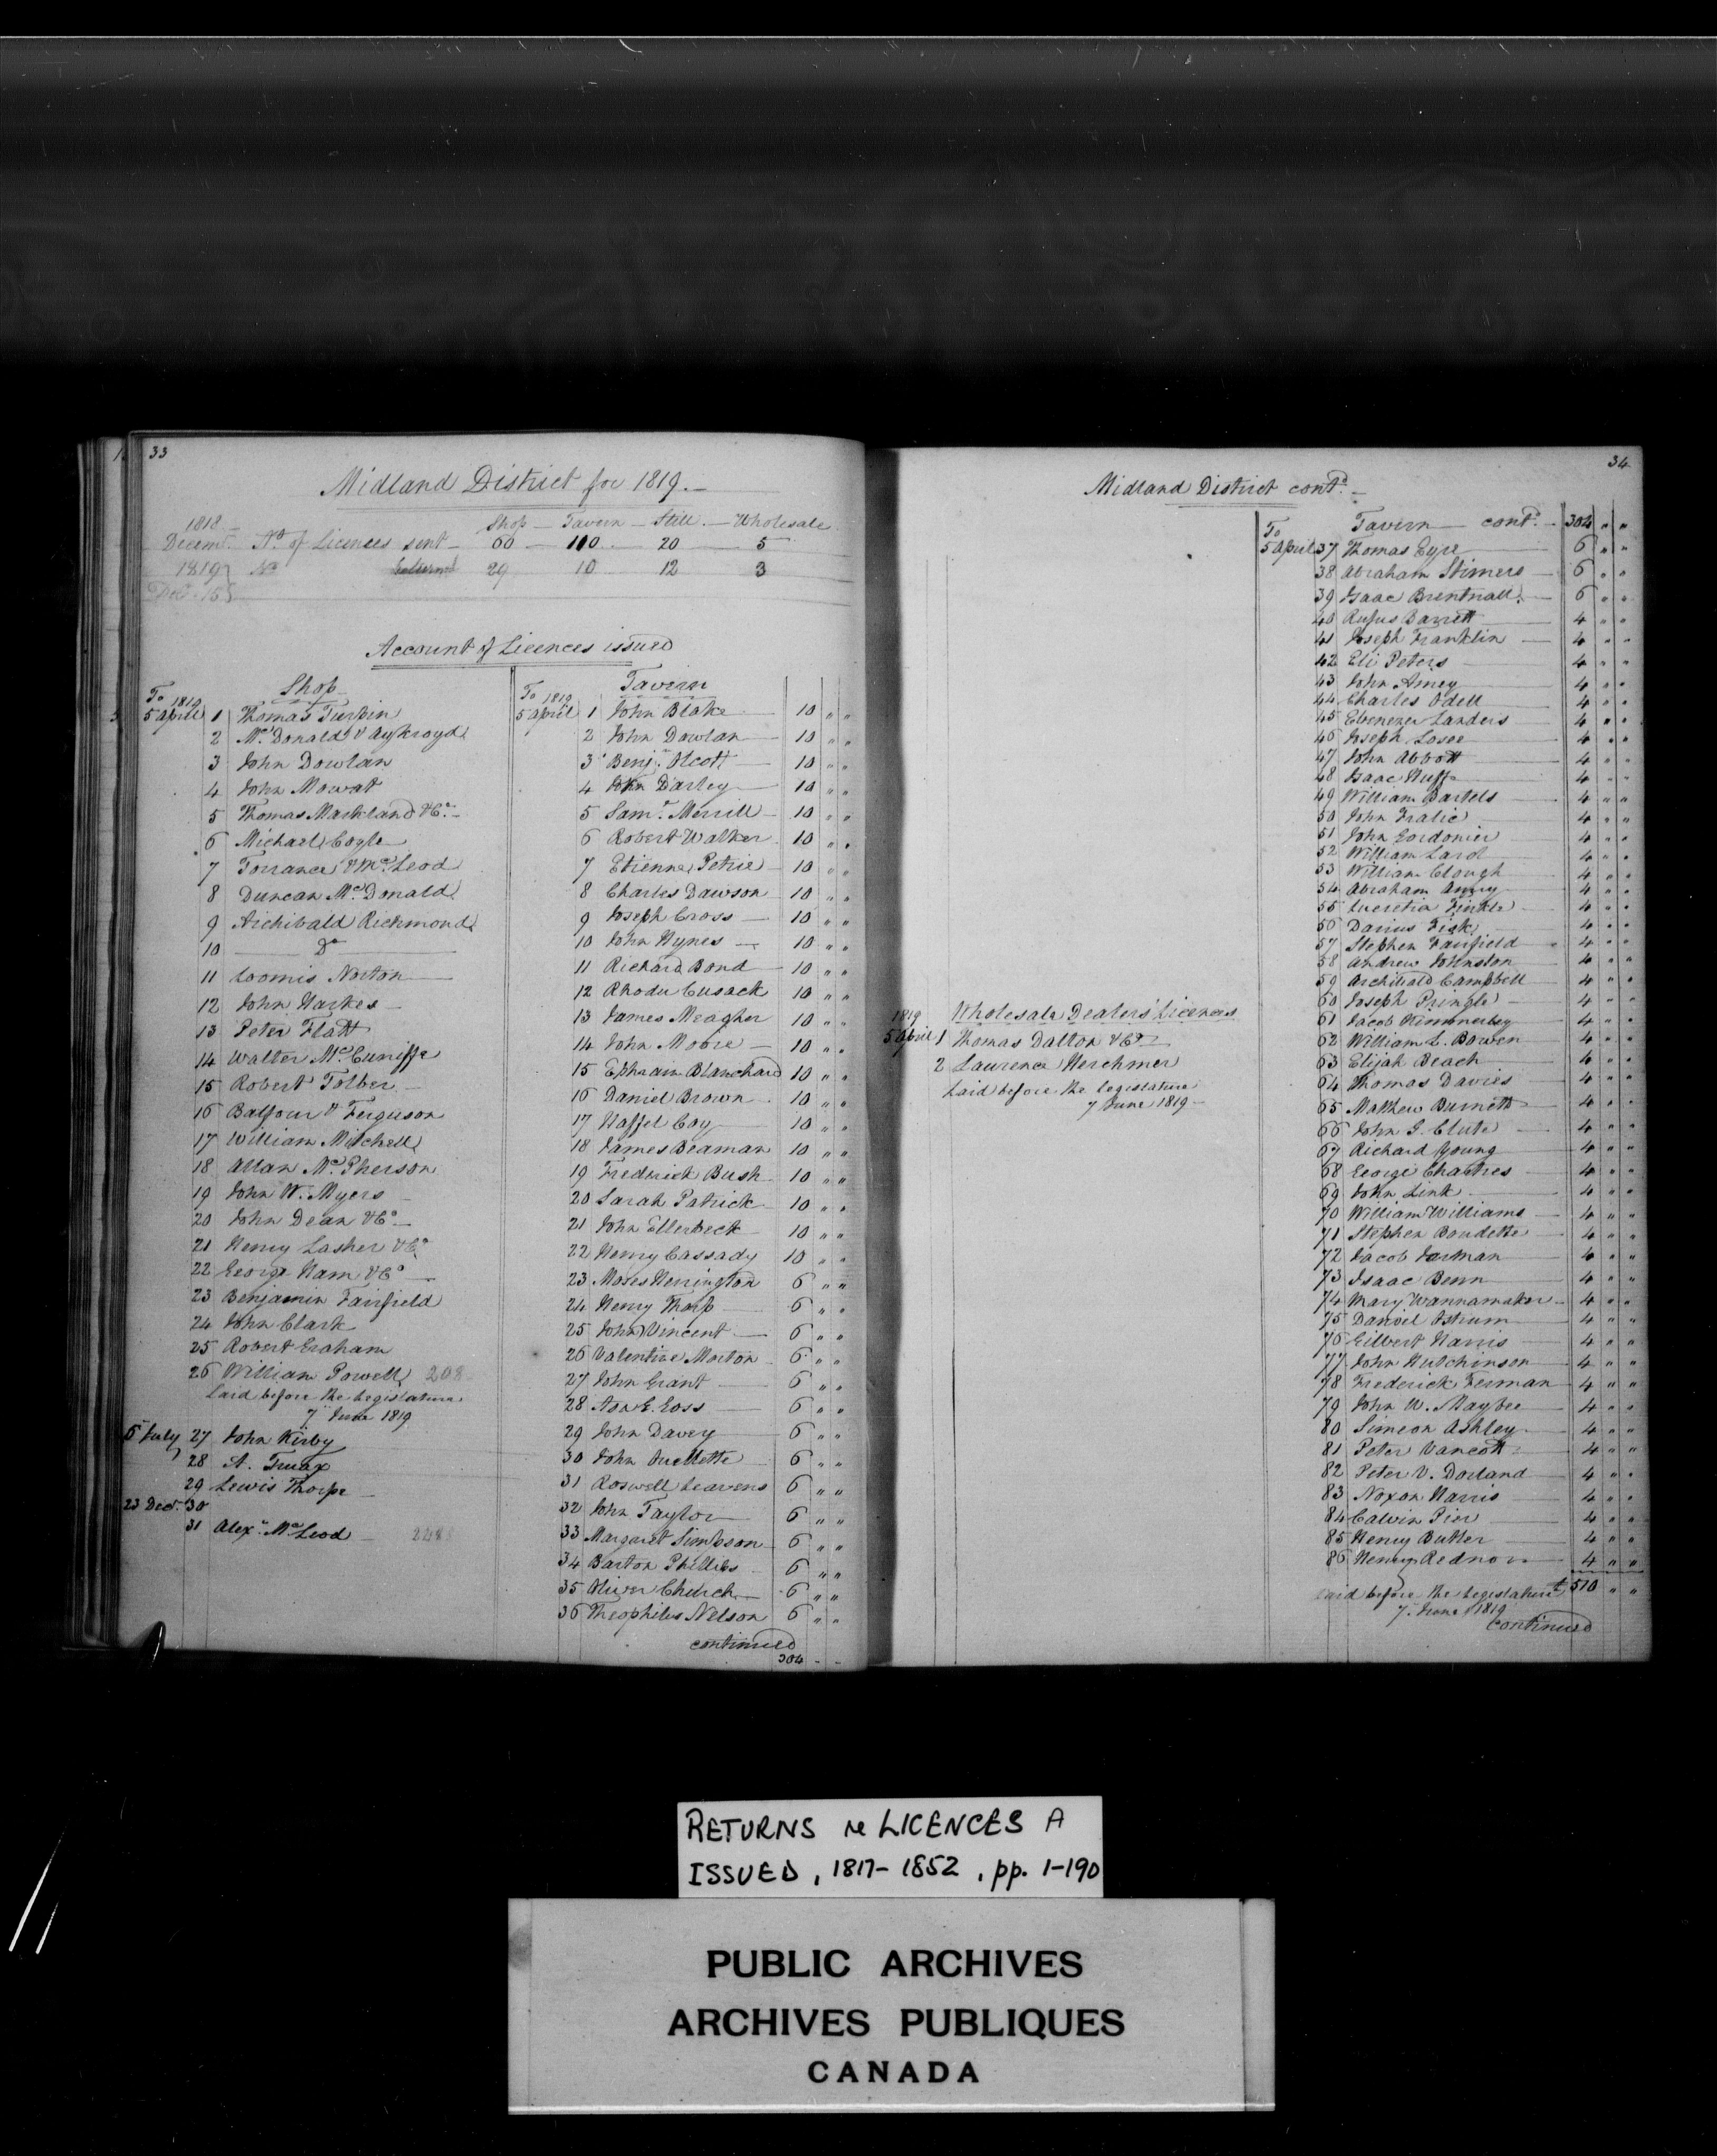 33
Midland District for 1819.
1818. Shop — Tavern — Still. — Wholesale
Decemr. No. of Licences sent — 60 — 110 — 20 — 5
1819 No Returned 29 10 12 3
Account of Licences issued
Shop
To 1819
5 April 1 Thomas Turpin
2 Mc.Donald & Aykroyd
3 John Dowlan
4 John Mowat
5 Thomas Markland & Co.
6 Michael Cogle
7 Torrance & Mc.Leod
8 Duncan Mc.Donald
9 Archibald Richmond
10 Do
11 Loomis Norton
12 John Harkes
13 Peter Flatt
14 Walter Mc.Cuniffe
15 Robert Tolber
16 Balfour & Ferguson
17 William Mitchell
18 Allan Mc.Pherson
19 John W. Myers
20 John Dean & Co.
21 Henry Lasher & Co.
22 George Ham & Co.
23 Benjamin Fairfield
24 John Clark
25 Robert Graham
26 William Powell 208
Laid before the Legislature
7 June 1819
5 July 27 John Kirby
28 A. Truax
29 Lewis Thorpe
23 Decr. 30
31 Alexr. Mc.Leod
Tavern
To 1819
5 April 1 John Blake 10 " "
2 John Dowlan 10 " "
3 Benj. Olcott 10 " "
4 John Darley 10 " "
5 Saml. Merrill 10 " "
6 Robert Walker 10 " "
7 Etienne Petrie 10 " "
8 Charles Dawson 10 " "
9 Joseph Cross 10 " "
10 John Hynes 10 " "
11 Richard Bond 10 " "
12 Rhoda Cusack 10 " "
13 James Meagher 10 " "
14 John Moore 10 " "
15 Ephraim Blanchard 10 " "
16 Daniel Brown 10 " "
17 Haffel Coy 10 " "
18 James Beaman 10 " "
19 Frederick Bush 10 " "
20 Sarah Patrick 10 " "
21 John Ellerbeck 10 " "
22 Henry Cassady 10 " "
23 Moses Herrington 6 " "
24 Henry Tharp 6 " "
25 John Vincent 6 " "
26 Valentine Morton 6 " "
27 John Grant 6 " "
28 Asa E. Ross 6 " "
29 John Davey 6 " "
30 John Ouellette 6 " "
31 Roswell Leavens 6 " "
32 John Taylor 6 " "
33 Margaret Simpson 6 " "
34 Barton Phillips 6 " "
35 Oliver Church 6 " "
36 Theophilus Nelson 6 " "
continued
304 - -
34
Midland District contd.
Wholesale Dealers Licences
1819
5 April 1 Thomas Dalton & Co.
2 Laurence Herchmer
Laid before the legislature
7 June 1819
Tavern contd. 304 " "
To
5 April 37 Thomas Eyre 6 " "
38 Abraham Stimers 6 " "
39 Isaac Brentnall 6 " "
40 Rufus Barrett 4 " "
41 Joseph Franklin 4 " "
42 Eli Peters 4 " "
43 John Amey 4 " "
44 Charles Odell 4 " "
45 Ebenezer Landers 4 " "
46 Joseph Losee 4 " "
47 John Abbott 4 " "
48 Isaac Huff 4 " "
49 William Bartels 4 " "
50 John Fralic 4 " "
51 John Gordonier 4 " "
52 William Lard 4 " "
53 William Clough 4 " "
54 Abraham Amey 4 " "
55 Lucretia Finkle 4 " "
56 Darius Fisk 4 " "
57 Stephen Fairfield 4 " "
58 Andrew Johnston 4 " "
59 Archibald Campbell 4 " "
60 Joseph Pringle 4 " "
61 Jacob Kimmerley 4 " "
62 William L. Bowen 4 " "
63 Elijah Beach 4 " "
64 Thomas Davies 4 " "
65 Matthew Burnett 4 " "
66 John G. Clute 4 " "
67 Richard Young 4 " "
68 George Chatres 4 " "
69 John Link 4 " "
70 William Williams 4 " "
71 Stephen Boudette 4 " "
72 Jacob Jarman 4 " "
73 Isaac Benn 4 " "
74 Mary Wannamaker 4 " "
75 Daniel Ostrum 4 " "
76 Gilbert Harris 4 " "
77 John Hutchinson 4 " "
78 Frederick Ferman 4 " "
79 John W. Maybee 4 " "
80 Simeon Ashley 4 " "
81 Peter Vancott 4 " "
82 Peter V. Dorland 4 " "
83 Noxon Harris 4 " "
84 Calvin Pier 4 " "
85 Henry Butler 4 " "
86 Henry Rednor 4 " "
Laid before the legislature £510 " "
7 June 1819
continued
RETURNS re LICENCES A
ISSUED, 1817-1852, pp. 1-190
PUBLIC ARCHIVES
ARCHIVES PUBLIQUES
CANADA